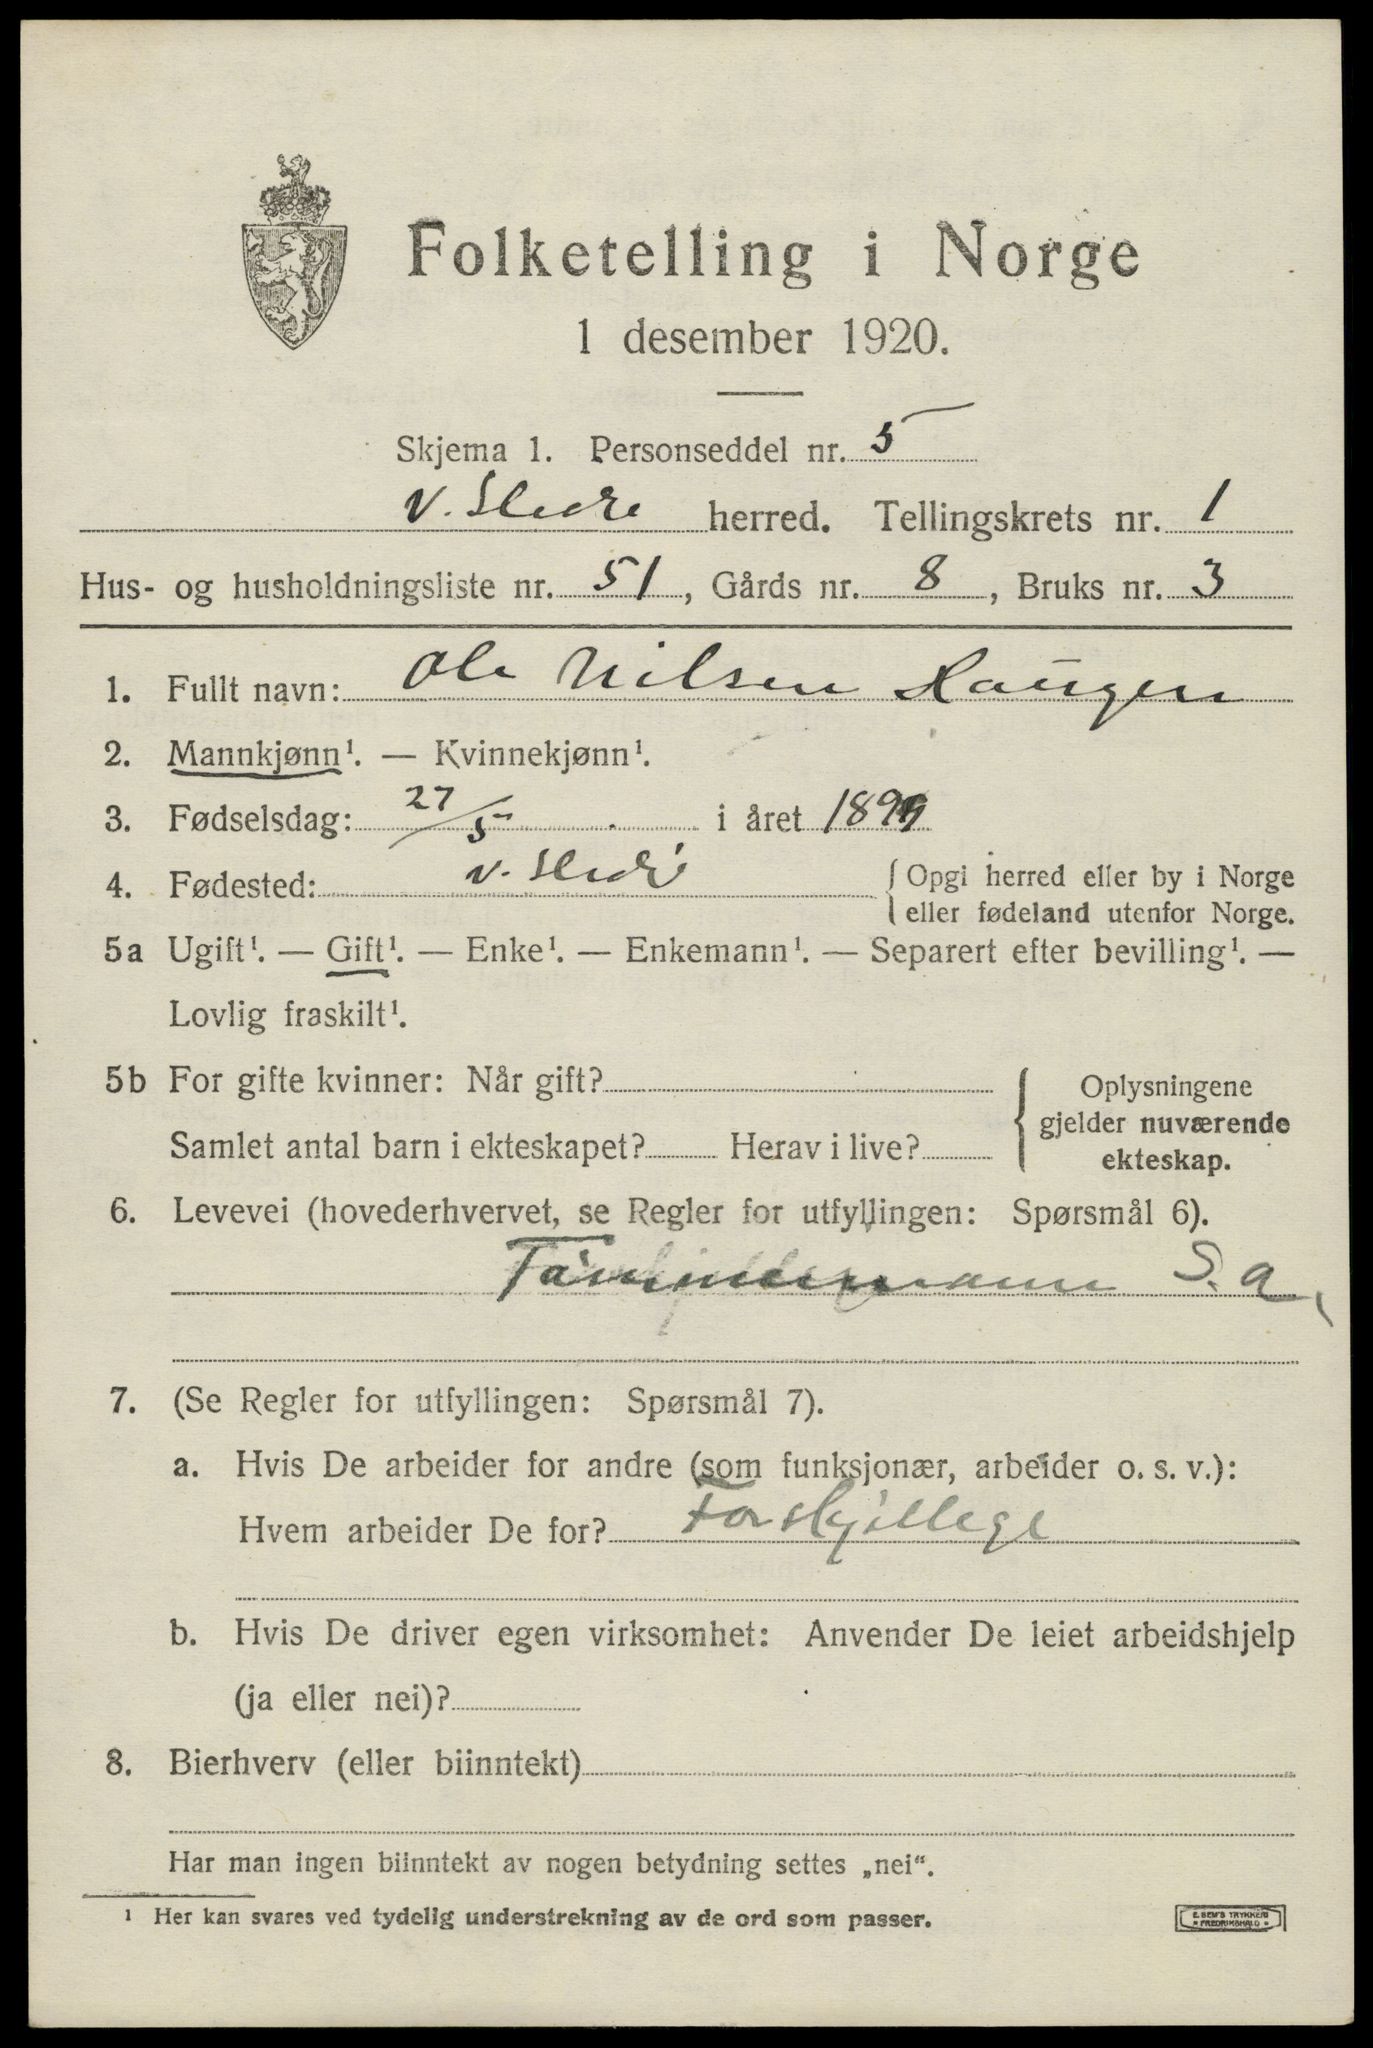 Folketelling i Norge
1 desember 1920.
Skjema 1. Personseddel nr. 5
V. Slidre herred. Tellingskrets nr. 1
Hus- og husholdningsliste nr. 51, Gårds nr. 8, Bruks nr. 3
1. Fullt navn: Ole Nilsen Haugen
2. Mannkjønn¹. — Kvinnekjønn¹.
3. Fødselsdag: 27/5 i året
4. Fødested: V. Slidre { Opgi herred eller by i Norge
eller fødeland utenfor Norge.
5a Ugift¹. — Gift¹. — Enke¹. — Enkemann¹. — Separert efter bevilling¹. —
Lovlig fraskilt¹.
5b For gifte kvinner: Når gift? { Oplysningene
gjelder nuværende
Samlet antal barn i ekteskapet? Herav i live?
ekteskap.
6. Levevei (hovederhvervet, se Regler for utfyllingen: Spørsmål 6).
S. a.
7. (Se Regler for utfyllingen: Spørsmål 7).
a. Hvis De arbeider for andre (som funksjonær, arbeider o. s. v.):
Hvem arbeider De for? Forskjellege
b. Hvis De driver egen virksomhet: Anvender De leiet arbeidshjelp
(ja eller nei)?
8. Bierhverv (eller biinntekt)
Har man ingen biinntekt av nogen betydning settes „nei“.
¹ Her kan svares ved tydelig understrekning av de ord som passer.
E. SEM'S TRYKKERI
* FREDRIKSHALD *